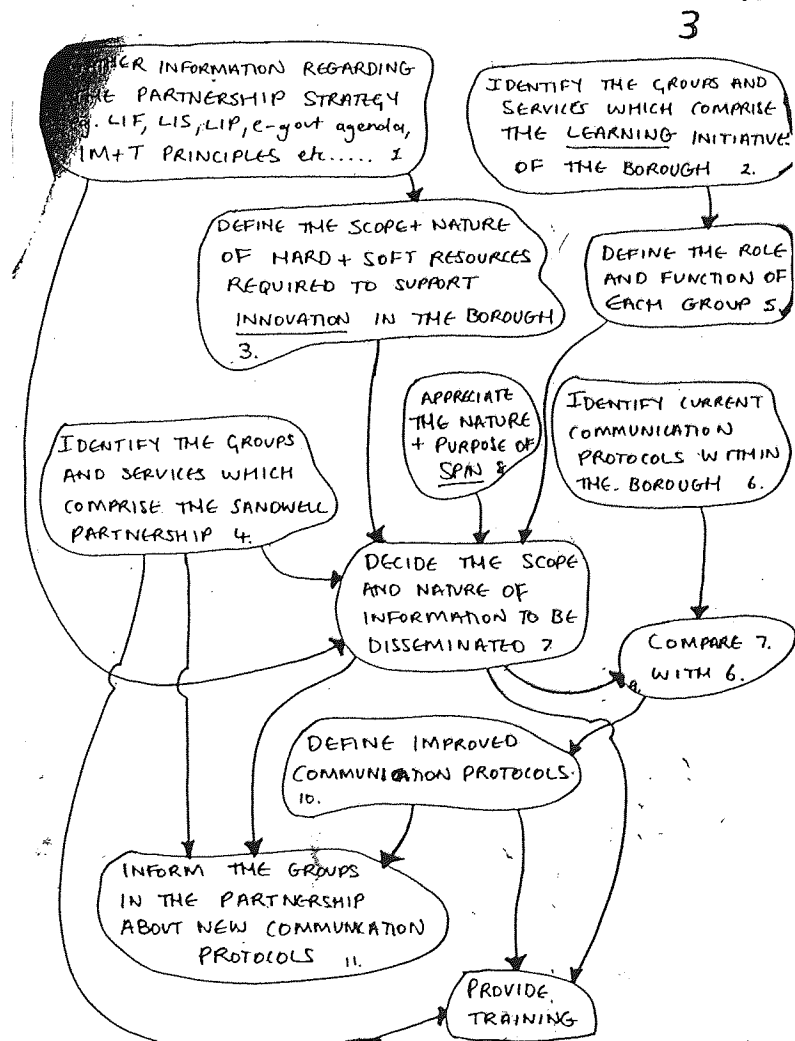 3
INFORMATION REGARDING
THE PARTNERSHIP STRATEGY
g. LIF, LIS, LIP, e-govt agenda,
IM+T PRINCIPLES etc..... 1
IDENTIFY THE GROUPS AND
SERVICES WHICH COMPRISE
THE LEARNING INITIATIVE
OF THE BOROUGH 2.
DEFINE THE SCOPE + NATURE
OF HARD + SOFT RESOURCES
REQUIRED TO SUPPORT
INNOVATION IN THE BOROUGH
3.
DEFINE THE ROLE
AND FUNCTION OF
EACH GROUP 5.
APPRECIATE
THE NATURE
+ PURPOSE OF
SPIN 8
IDENTIFY CURRENT
COMMUNICATION
PROTOCOLS WITHIN
THE. BOROUGH 6.
IDENTIFY THE GROUPS
AND SERVICES WHICH
COMPRISE THE SANDWELL
PARTNERSHIP 4.
DECIDE THE SCOPE
AND NATURE OF
INFORMATION TO BE
DISSEMINATED 7
COMPARE 7.
WITH 6.
9.
DEFINE IMPROVED
COMMUNICATION PROTOCOLS.
10.
INFORM THE GROUPS
IN THE PARTNERSHIP
ABOUT NEW COMMUNICATION
PROTOCOLS 11.
PROVIDE
TRAINING